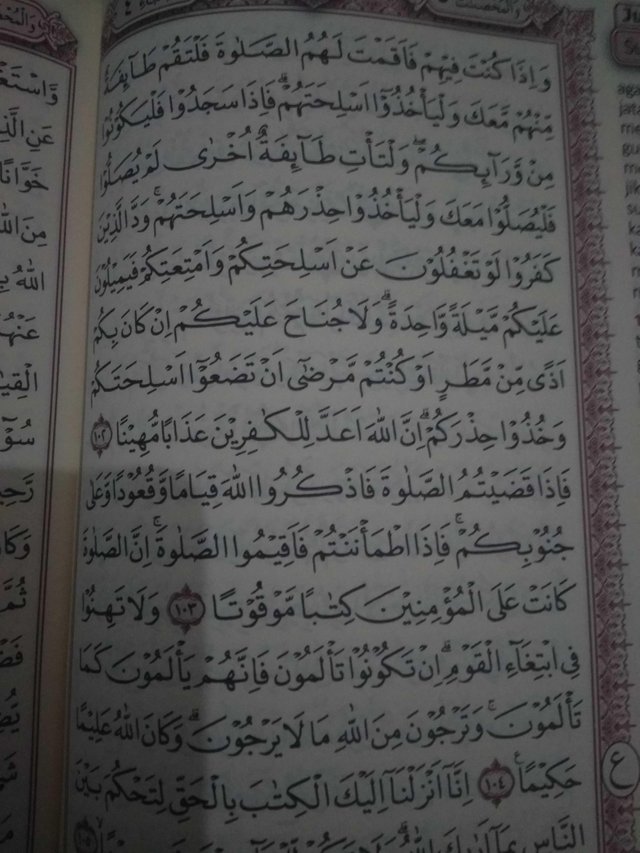 وَاِذَا كُنْتَ فِيْهِمْ فَاَقَمْتَ لَهُمُ الصَّلٰوةَ فَلْتَقُمْ طَاۤىِٕفَةٌ
مِّنْهُمْ مَّعَكَ وَلْيَأْخُذُوْٓا اَسْلِحَتَهُمْ ۗ فَاِذَا سَجَدُوْا فَلْيَكُوْنُوْا
مِنْ وَّرَاۤىِٕكُمْ ۖ وَلْتَأْتِ طَاۤىِٕفَةٌ اُخْرٰى لَمْ يُصَلُّوْا
فَلْيُصَلُّوْا مَعَكَ وَلْيَأْخُذُوْا حِذْرَهُمْ وَاَسْلِحَتَهُمْ ۚ وَدَّ الَّذِيْنَ
كَفَرُوْا لَوْ تَغْفُلُوْنَ عَنْ اَسْلِحَتِكُمْ وَاَمْتِعَتِكُمْ فَيَمِيْلُوْنَ
عَلَيْكُمْ مَّيْلَةً وَّاحِدَةً ۗ وَلَا جُنَاحَ عَلَيْكُمْ اِنْ كَانَ بِكُمْ
اَذًى مِّنْ مَّطَرٍ اَوْ كُنْتُمْ مَّرْضٰٓى اَنْ تَضَعُوْٓا اَسْلِحَتَكُمْ
وَخُذُوْا حِذْرَكُمْ ۗ اِنَّ اللّٰهَ اَعَدَّ لِلْكٰفِرِيْنَ عَذَابًا مُّهِيْنًا ١٠٢
فَاِذَا قَضَيْتُمُ الصَّلٰوةَ فَاذْكُرُوا اللّٰهَ قِيَامًا وَّقُعُوْدًا وَّعَلٰى
جُنُوْبِكُمْ ۚ فَاِذَا اطْمَأْنَنْتُمْ فَاَقِيْمُوا الصَّلٰوةَ ۚ اِنَّ الصَّلٰوةَ
كَانَتْ عَلَى الْمُؤْمِنِيْنَ كِتٰبًا مَّوْقُوْتًا ١٠٣ وَلَا تَهِنُوْا
فِى ابْتِغَاۤءِ الْقَوْمِ ۗ اِنْ تَكُوْنُوْا تَأْلَمُوْنَ فَاِنَّهُمْ يَأْلَمُوْنَ كَمَا
تَأْلَمُوْنَ ۚ وَتَرْجُوْنَ مِنَ اللّٰهِ مَا لَا يَرْجُوْنَ ۗ وَكَانَ اللّٰهُ عَلِيْمًا
حَكِيْمًا ࣖ ١٠٤ اِنَّآ اَنْزَلْنَآ اِلَيْكَ الْكِتٰبَ بِالْحَقِّ لِتَحْكُمَ بَيْنَ
النَّاسِ بِمَآ اَرٰىكَ اللّٰهُ ۗ
ع